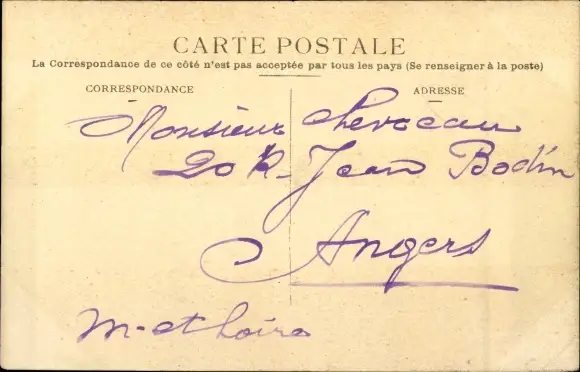 CARTE POSTALE
La Correspondance de ce côté n'est pas acceptée par tous les pays (Se renseigner à la poste)
CORRESPONDANCE
ADRESSE
Monsieur Chevaceau
20 R. Jean Bodin
Angers
M-et-Loire